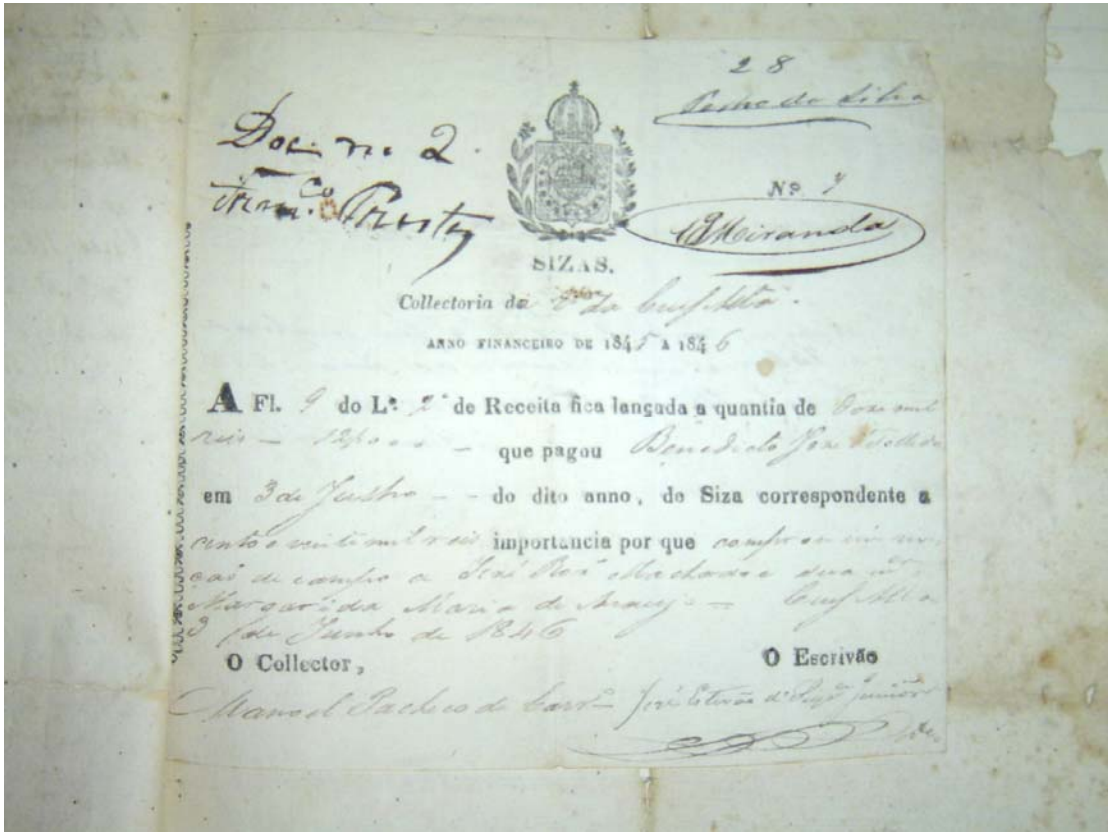 28
Pedro da Silva
Doc. nº 2.
Franco. Prestes
Nº 7
Miranda
SIZAS.
Collectoria da Va. da Cruz Alta.
ANNO FINANCEIRO DE 1845 A 1846
A Fl. 9 do Lº 2º de Receita fica lançada a quantia de Doze mil
reis — 12$000 — que pagou Benedicto José
em 3 de Junho — do dito anno, de Siza correspondente a
cento e vinte mil reis importancia por que comprou
de campo a José Machado e sua
Margarida Maria de Araujo — Cruz Alta
3 de Junho de 1846
O Collector, O Escrivão
Manoel Pacheco de Carvº José Junior